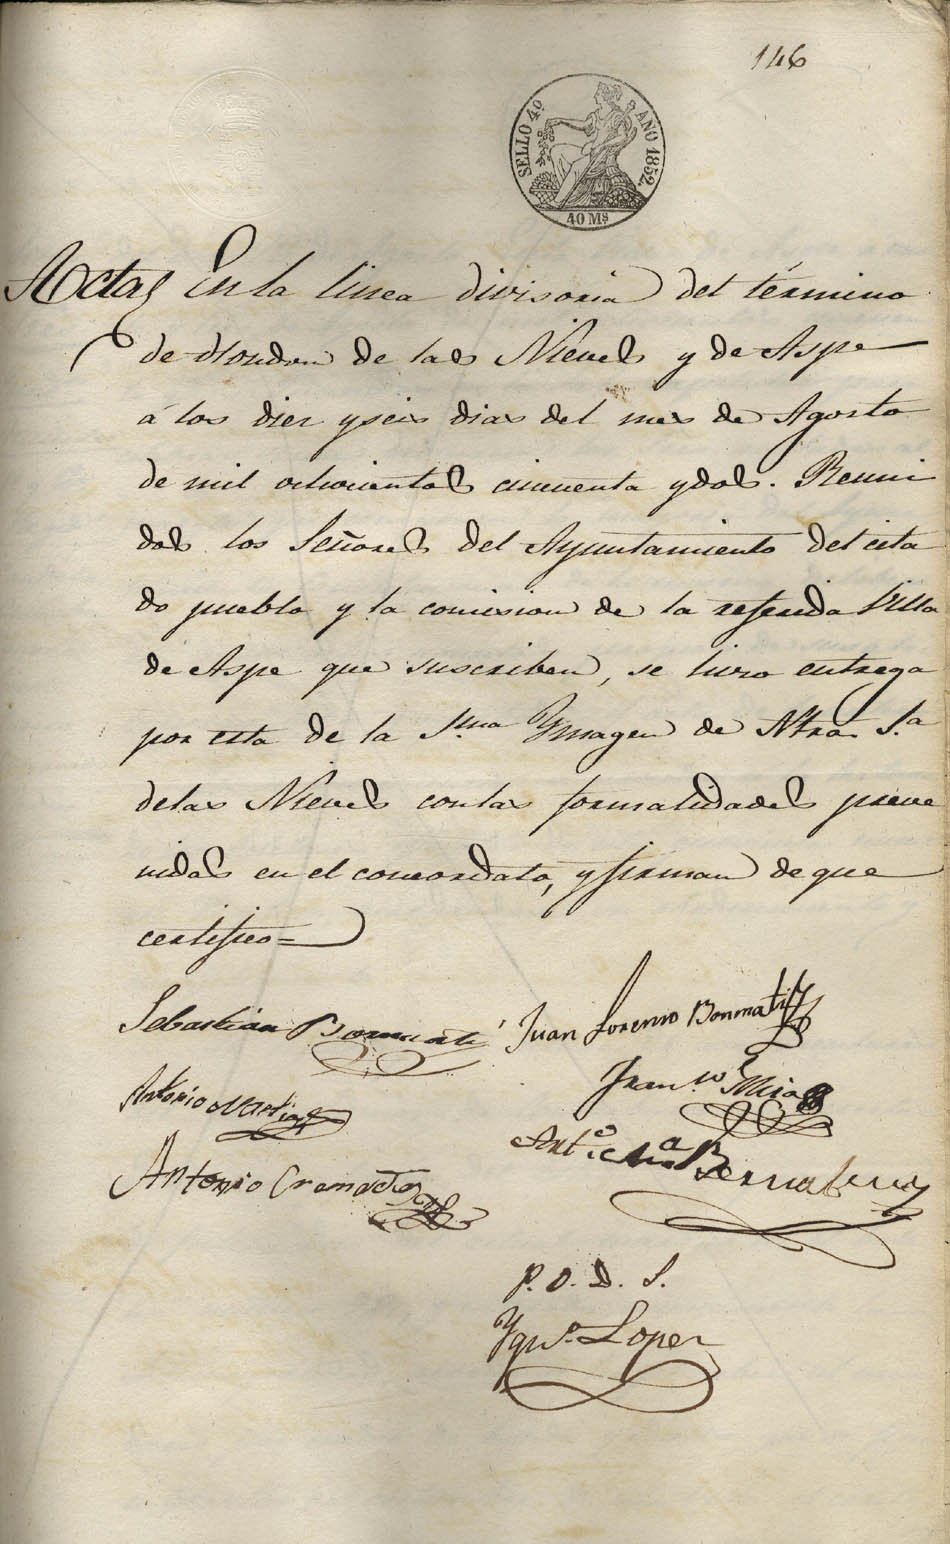 146
SELLO 4º AÑO 1852
40 Ms
Acta En la linea divisoria del término
de Hondon de las Nieves y de Aspe
á los diez y seis dias del mes de Agosto
de mil ochocientos cincuenta y dos. Reuni
dos los Señores del Ayuntamiento del cita
do pueblo y la comision de la referida Villa
de Aspe que suscriben, se hizo entrega
por esta de la S.ma Ymagen de Ntra S.a
de las Nieves con las formalidades preve
nidas en el concordato, y firman de que
certifico=
Sebastian Bonmati Juan Lorenzo Bonmati
Fran.co Mira
Antonio Martinez
Ant.o Ma Bernabeu
Antonio Cremades
P. O. D. S.
Ygn.o Lopez